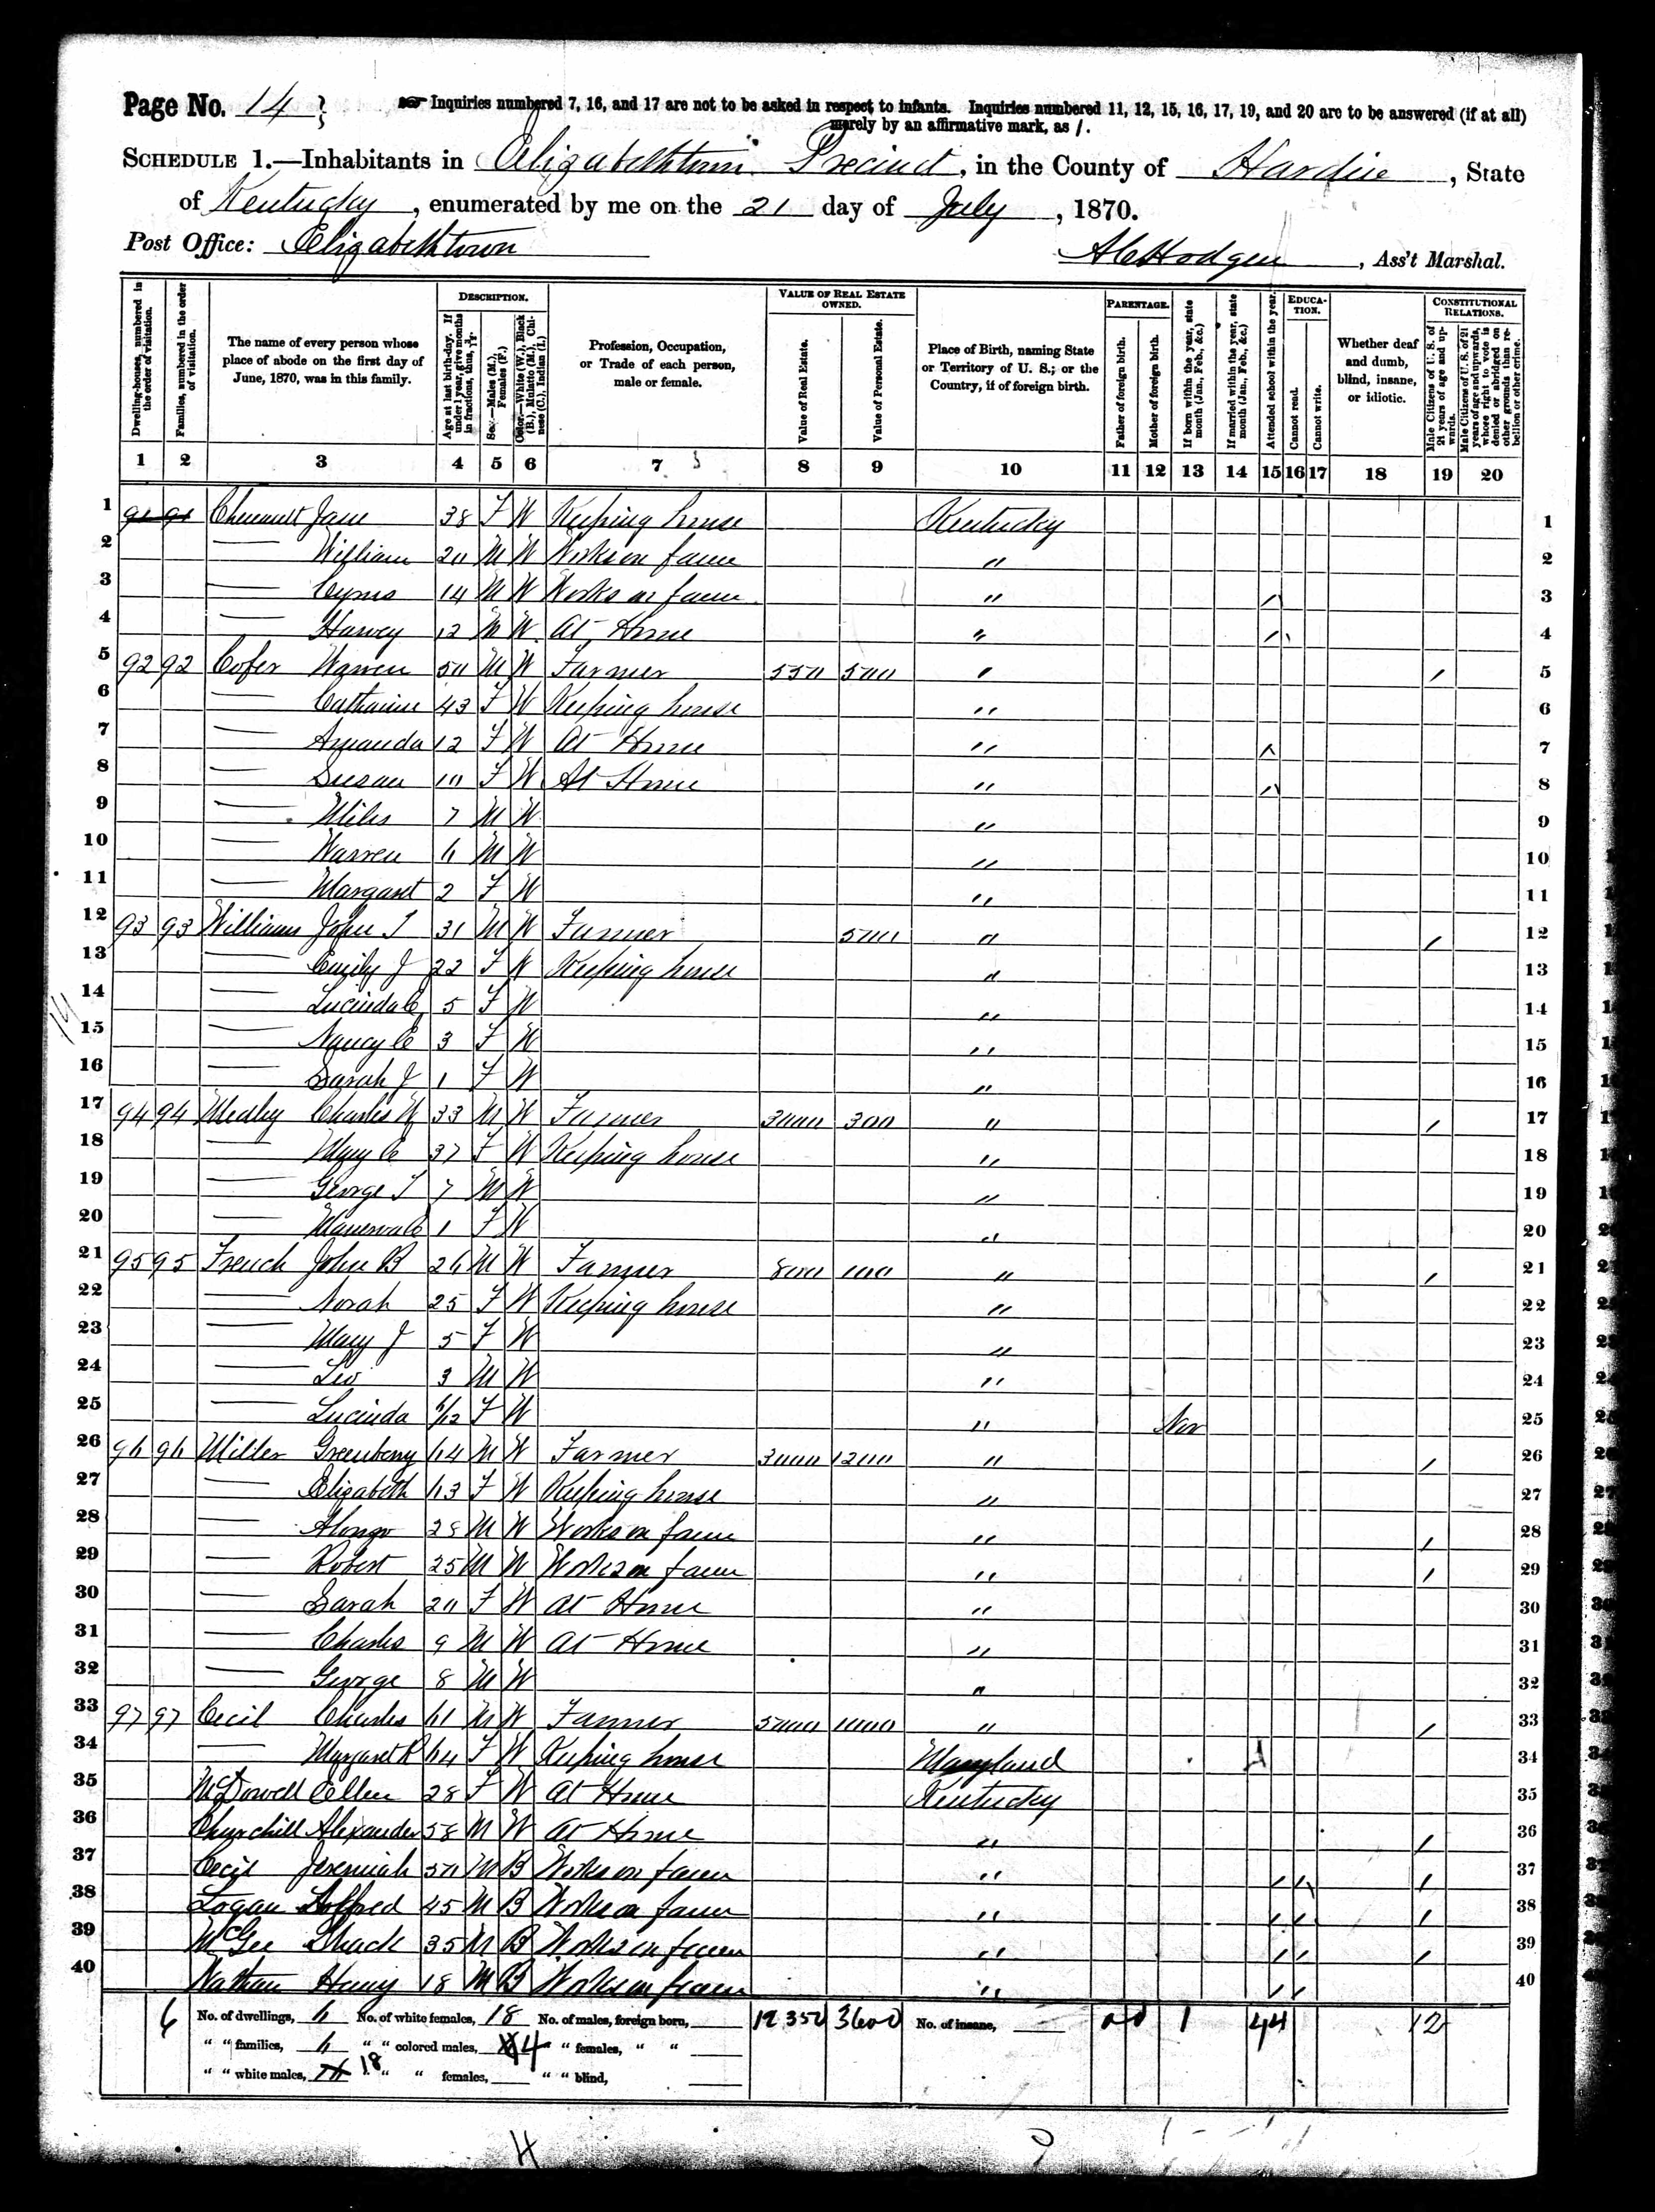 Page No. 14 Inquiries numbered 7, 16, and 17 are not to be asked in respect to infants. Inquiries numbered 11, 12, 15, 16, 17, 19, and 20 are to be answered (if at all)
merely by an affirmative mark, as /.
SCHEDULE 1.—Inhabitants in Elizabethtown Precinct, in the County of Hardin, State
of Kentucky, enumerated by me on the 21 day of July, 1870.
Post Office: Elizabethtown Hodgen, Ass't Marshal.
Dwelling-houses, numbered in the order of visitation.
Families, numbered in the order of visitation.
The name of every person whose place of abode on the first day of June, 1870, was in this family.
DESCRIPTION.
Age at last birth-day. If under 1 year, give months in fractions, thus, 3/12.
Sex.—Males (M.), Females (F.)
Color.—White (W.), Black (B.), Mulatto (M.), Chinese (C.), Indian (I.)
Profession, Occupation, or Trade of each person, male or female.
VALUE OF REAL ESTATE OWNED.
Value of Real Estate.
Value of Personal Estate.
Place of Birth, naming State or Territory of U. S.; or the Country, if of foreign birth.
PARENTAGE.
Father of foreign birth.
Mother of foreign birth.
If born within the year, state month (Jan., Feb., &c.)
If married within the year, state month (Jan., Feb., &c.)
Attended school within the year.
EDUCATION.
Cannot read.
Cannot write.
Whether deaf and dumb, blind, insane, or idiotic.
CONSTITUTIONAL RELATIONS.
Male Citizens of U. S. of 21 years of age and upwards.
Male Citizens of U. S. of 21 years of age and upwards, whose right to vote is denied or abridged on other grounds than rebellion or other crime.
1 2 3 4 5 6 7 8 9 10 11 12 13 14 15 16 17 18 19 20
1 91 91 Chenault Jane 38 F W Keeping house Kentucky 1
2 — William 20 M W Works on farm " 2
3 — Cyrus 14 M W Works on farm " / 3
4 — Harvey 12 M W At Home " / 4
5 92 92 Cofer Warren 50 M W Farmer 550 500 " / 5
6 — Catharine 43 F W Keeping house " 6
7 — Amanda 12 F W At Home " / 7
8 — Susan 10 F W At Home " / 8
9 — Miles 7 M W " 9
10 — Warren 6 M W " 10
11 — Margaret 2 F W " 11
12 93 93 Williams John T 31 M W Farmer 500 " / 12
13 — Emily J 22 F W Keeping house " 13
14 — Lucinda C 5 F W " 14
15 — Nancy C 3 F W " 15
16 — Sarah J 1 F W " 16
17 94 94 Medley Charles W 33 M W Farmer 3000 300 " / 17
18 — Mary C 37 F W Keeping house " 18
19 — George T 7 M W " 19
20 — 1 F W " 20
21 95 95 French John B 26 M W Farmer 800 100 " / 21
22 — Norah 25 F W Keeping house " 22
23 — Mary J 5 F W " 23
24 — Leo 3 M W " 24
25 — Lucinda 6/12 F W " Nov 25
26 96 96 Miller Greenberry 64 M W Farmer 3000 1200 " / 26
27 — Elizabeth 63 F W Keeping house " 27
28 — Alonzo 28 M W Works on farm " / 28
29 — Robert 25 M W Works on farm " / 29
30 — Sarah 20 F W At Home " 30
31 — Charles 9 M W At Home " 31
32 — George 8 M W " 32
33 97 97 Cecil Charles 61 M W Farmer 5000 1000 " / 33
34 — Margaret R 64 F W Keeping house Maryland 34
35 McDowell Ellen 28 F W At Home Kentucky 35
36 Churchill Alexander 58 M W At Home " / 36
37 Cecil Jeremiah 50 M B Works on farm " / / / 37
38 Logan 45 M B Works on farm " / / / 38
39 McGee Shack 35 M B Works on farm " / / / 39
40 Nathan Henry 18 M B Works on farm " / / 40
6 No. of dwellings, 6 No. of white females, 18 No. of males, foreign born, 12350 3600 No. of insane, 1 44 12
" " families, 6 " " colored males, 4 " " females, " "
" " white males, 18 " " females, " " blind,